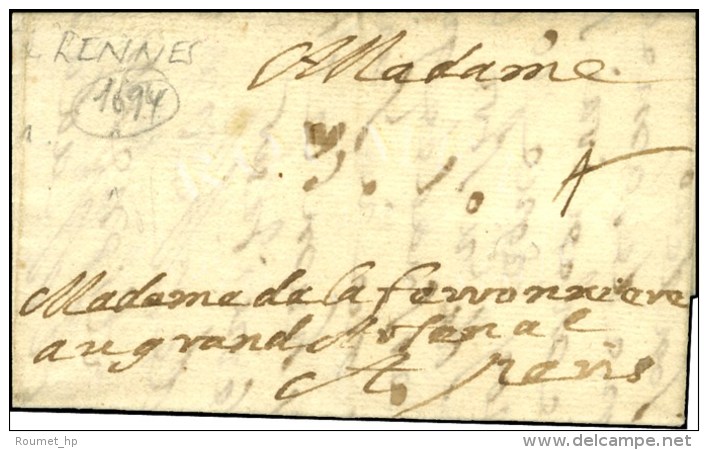 RENNES
1694
Madame
4
Madame de la ferronniere
au grand Arsenal
A Paris
Roumet_hp
www.delcampe.net